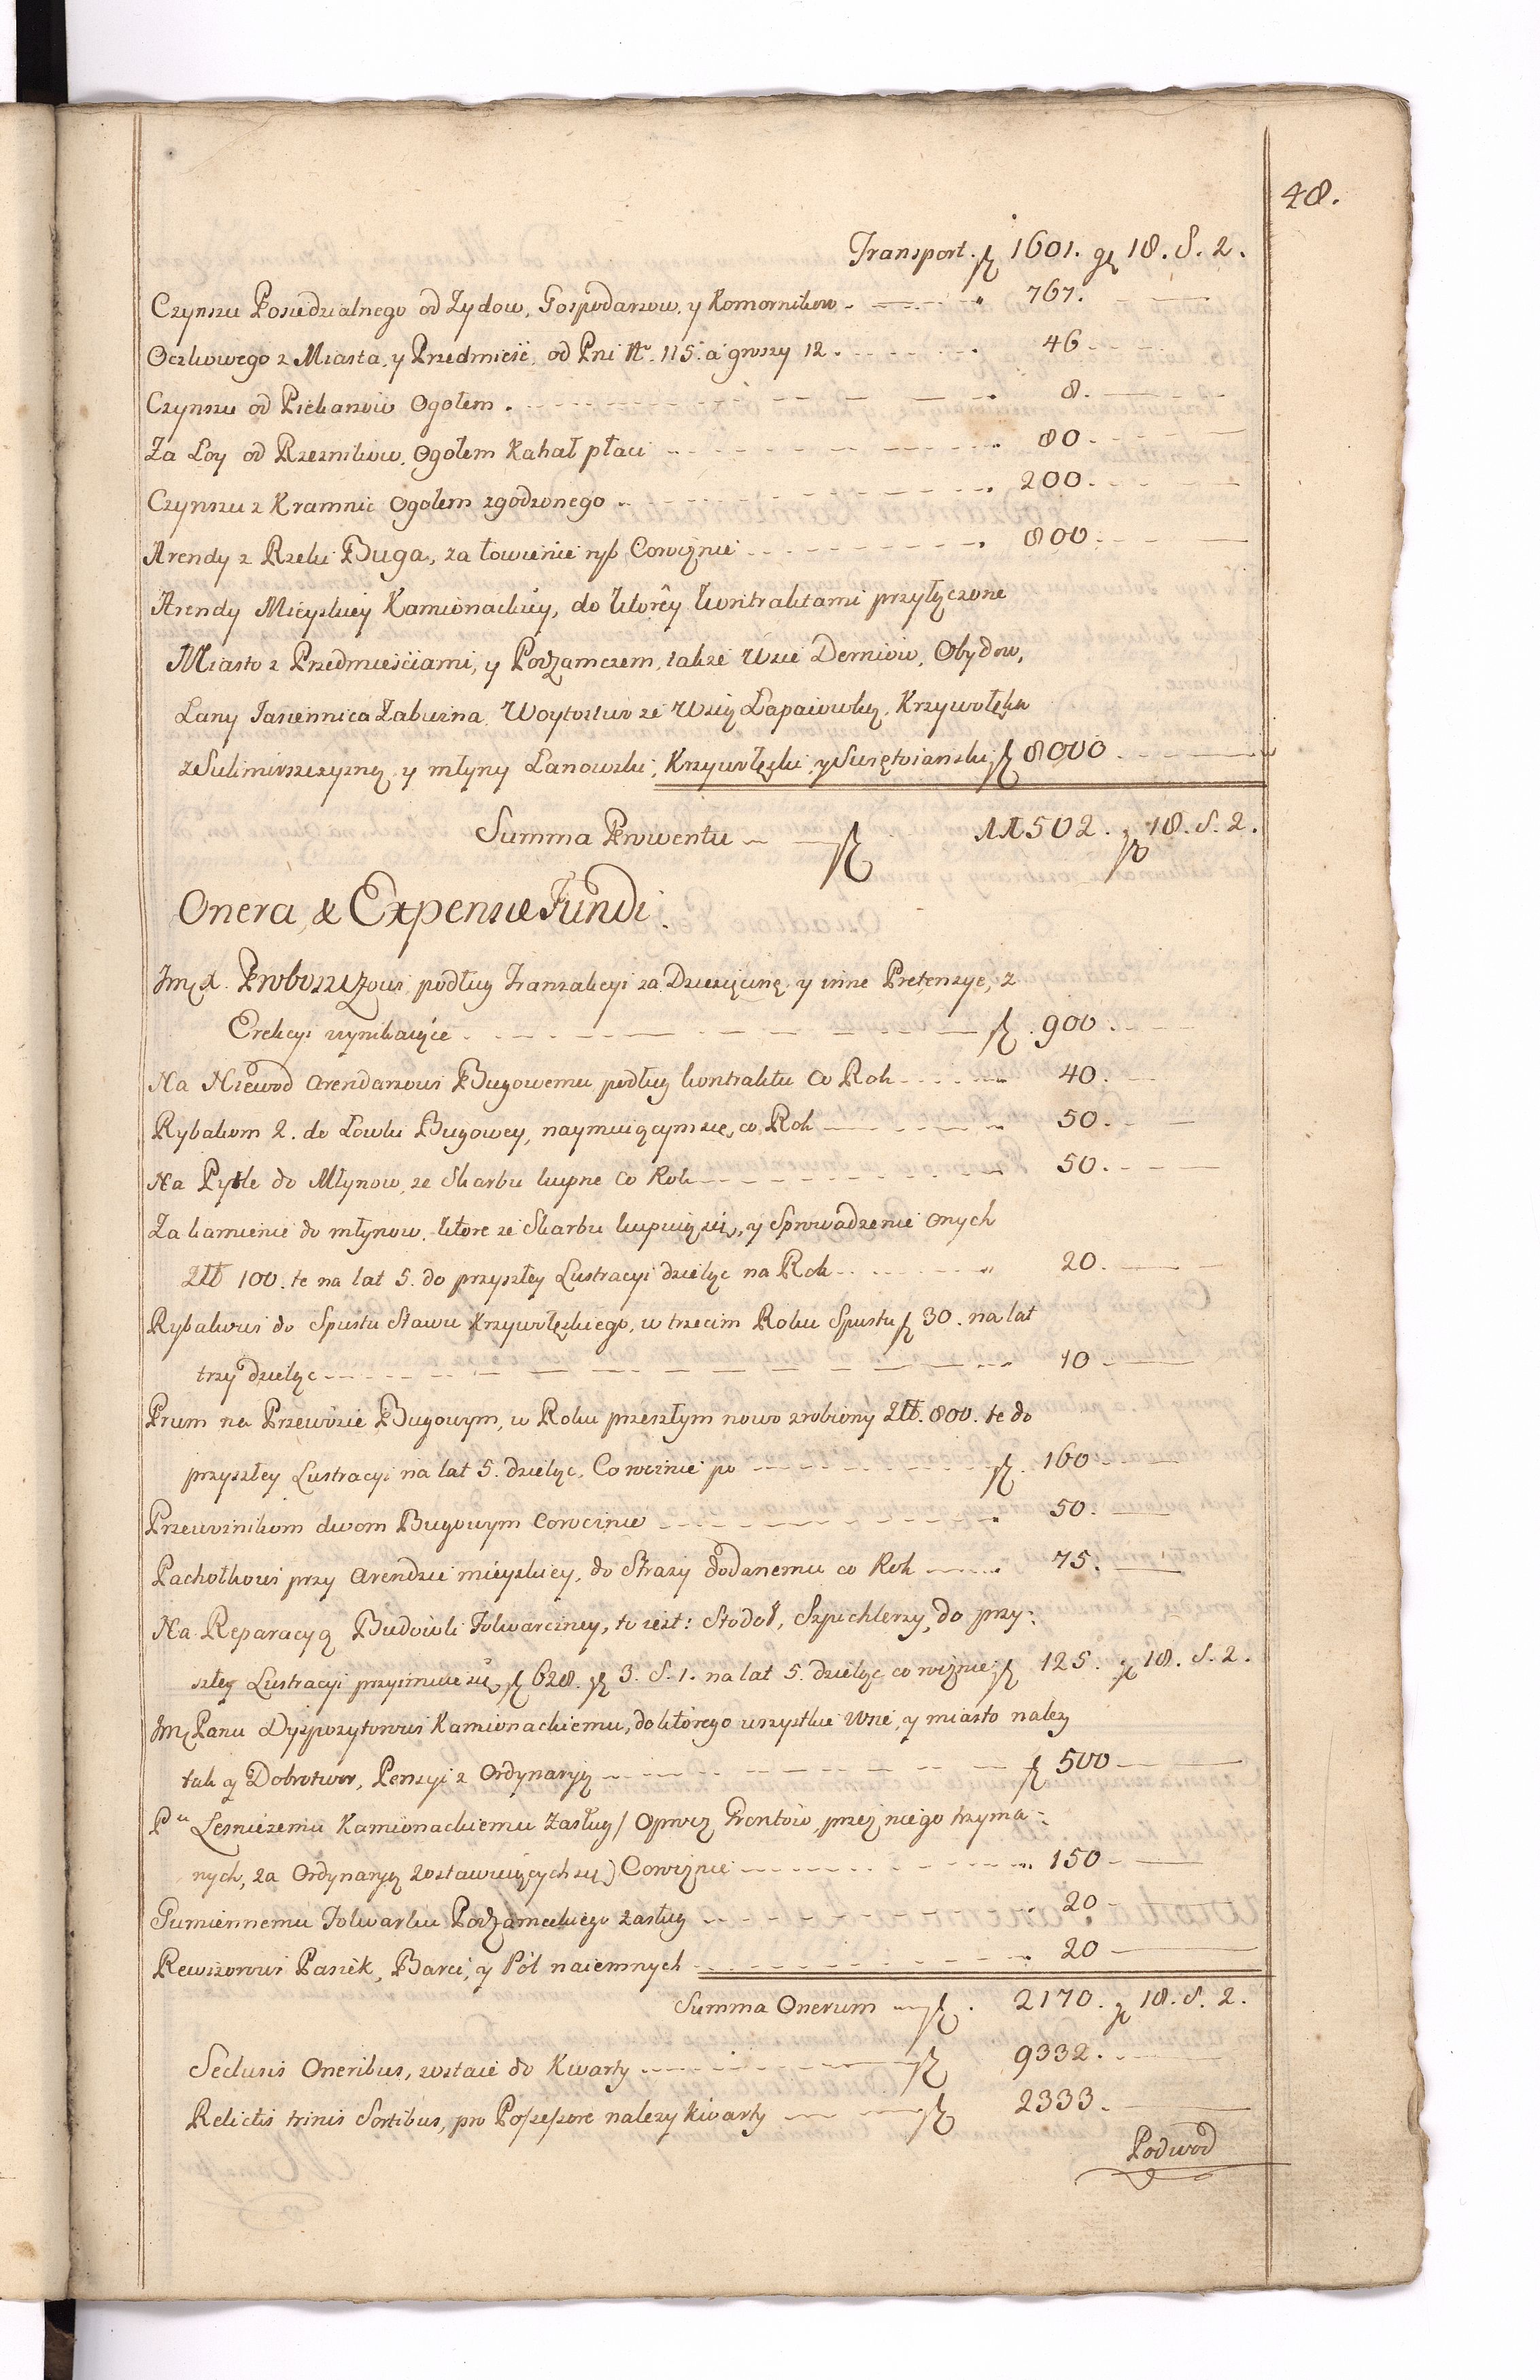 48.
Transport. fl 1601. gr 18. S. 2.
Czynszu Posiedzialnego od Zydow, Gospodarzow, y Komornikow. 767.
Oczkowego z Miasta, y Przedmieść, od Pni Nr. 115. a groszy 12. 46
Czynszu od Piekarzow Ogołem. 8.
Za Łoy od Rzeznikow, Ogołem Kahał płaci 80
Czynszu z Kramnic Ogołem zgodzonego 200.
Arendy z Rzeki Buga, za łowienie ryb Corocznie 800.
Arendy Mieyskiey Kamionackiey, do ktorey kontraktami przyłączone
Miasto z Przedmieściami, y Podzamczem, także Wsie Derniow, Obydow,
Łany Jasiennica Zabuzna, Woytostwo ze Wsią Łapaiowką, Krzywołęka
z Sulimirszczyzną, y młyny Łanowski, Krzywołęski, y Swiętoianski, fl 8000
Summa Prowentu fl 11502. gr 18. S. 2.
Onera, & Expensæ Fundi.
Jmx. Proboszczowi podług Tranzakcyi za Dziesięcinę, y inne Pretensye, z
Erekcyi wynikaiące fl. 900
Na Niewod Arendarzowi Bugowemu podług kontraktu co Rok 40.
Rybakom 2. do Łowki Bugowey, naymuiącym się, co Rok 50.
Na Pytle do Młynow, ze Skarbu kupne co Rok 50.
Za kamienie do młynow, ktore ze Skarbu kupuią się, y Sprowadzenie onych
Złł 100. te na lat 5. do przyszłey Lustracyi dzieląc na Rok 20.
Rybakowi do Spustu Stawu Krzywołęckiego, w trzecim Roku Spustu fl 30. na lat
trzy dzieląc 10
Prum na Przewozie Bugowym, w Roku przeszłym nowo zrobiony Złł. 800. te do
przyszłey Lustracyi na lat 5. dzieląc, Corocznie po fl. 160
Przewoznikom dwom Bugowym Corocznie 50.
Pachołkowi przy Arendzie mieyskiey, do Strazy dodanemu co Rok 75.
Na Reparacyą Budowli Folwarczney, to iest: Stodoł, Szpichlerzy, do przy:
szłey Lustracyi przyimuie się fl 628. gr 3. S. 1. na lat 5. dzieląc corocznie fl 125. gr 18. S. 2.
Jm Panu Dyspozytorowi Kamionackiemu, do ktorego wszystkie Wsie, y miasto nalezą
tak y Dobrotwor, Pensyi z Ordynaryą fl 500
Pu Lesniczemu Kamionackiemu Zasług / Oprocz Gruntow, przez niego trzyma:
nych, za Ordynaryą zostawuiących się) Corocznie 150
Gumiennemu Folwarku Podzameckiego zasług 20
Rewizorowi Pasiek, Barci, y Pól naiemnych 20
Summa Onerum fl. 2170. gr 18. S. 2.
Seclusis Oneribus, zostaie do Kwarty fl 9332.
Relictis trinis Sortibus, pro Possessore nalezy Kwarty fl 2333.
Podwod